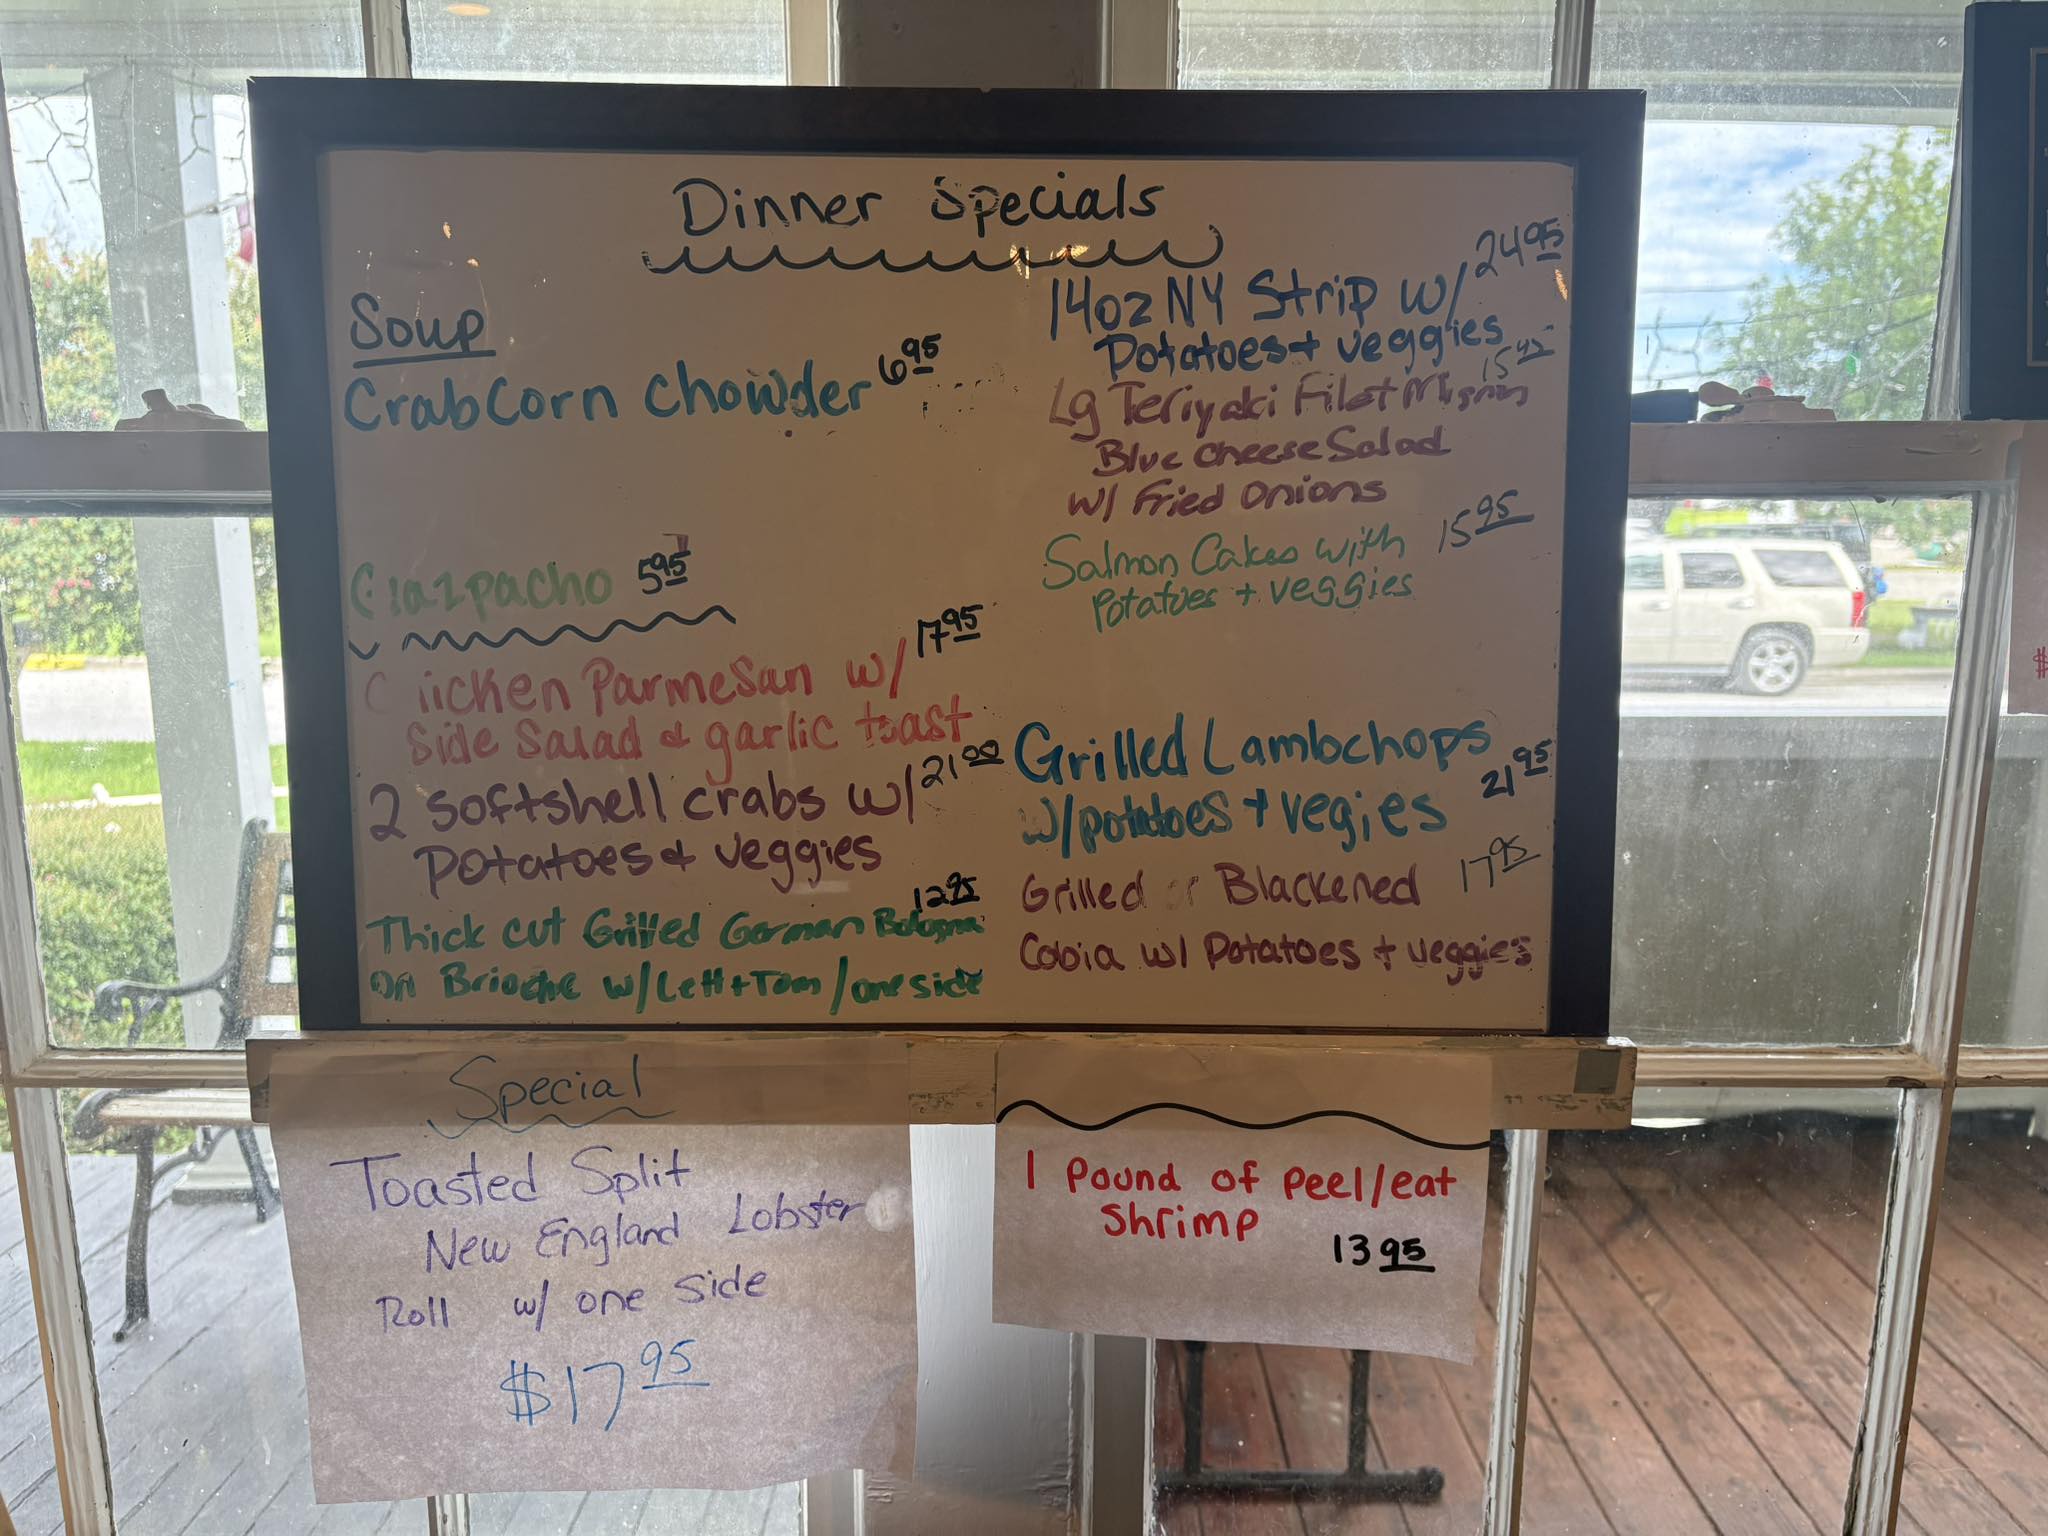 Dinner Specials
Soup
Crab Corn Chowder 6 95
Gazpacho 5 95
Chicken Parmesan w/ 17 95
Side Salad & garlic toast
2 softshell crabs w/ 21 00
potatoes & veggies
12 95
Thick cut Grilled German Bologna
on Brioche w/ Lett + Tom / one side
24 95
14oz NY Strip w/
Potatoes + veggies
15 95
Lg Teriyaki Filet Mignon
Blue Cheese Salad
w/ Fried Onions
Salmon Cakes with 15 95
Potatoes + veggies
Grilled Lambchops
w/ potatoes + vegies 21 95
Grilled or Blackened 17 95
Cobia w/ Potatoes + veggies
Special
Toasted Split
New England Lobster
Roll w/ one side
$17 95
1 Pound of peel/eat
Shrimp
13 95
$